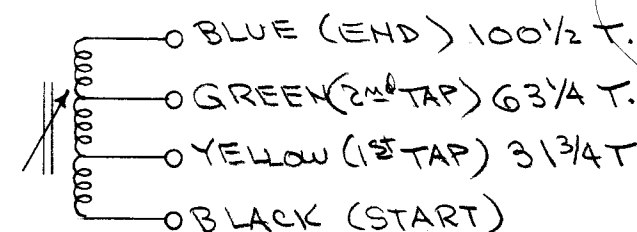 BLUE (END) 100 1/2 T.
GREEN (2nd TAP) 63 1/4 T.
YELLOW (1st TAP) 31 3/4 T
BLACK (START)